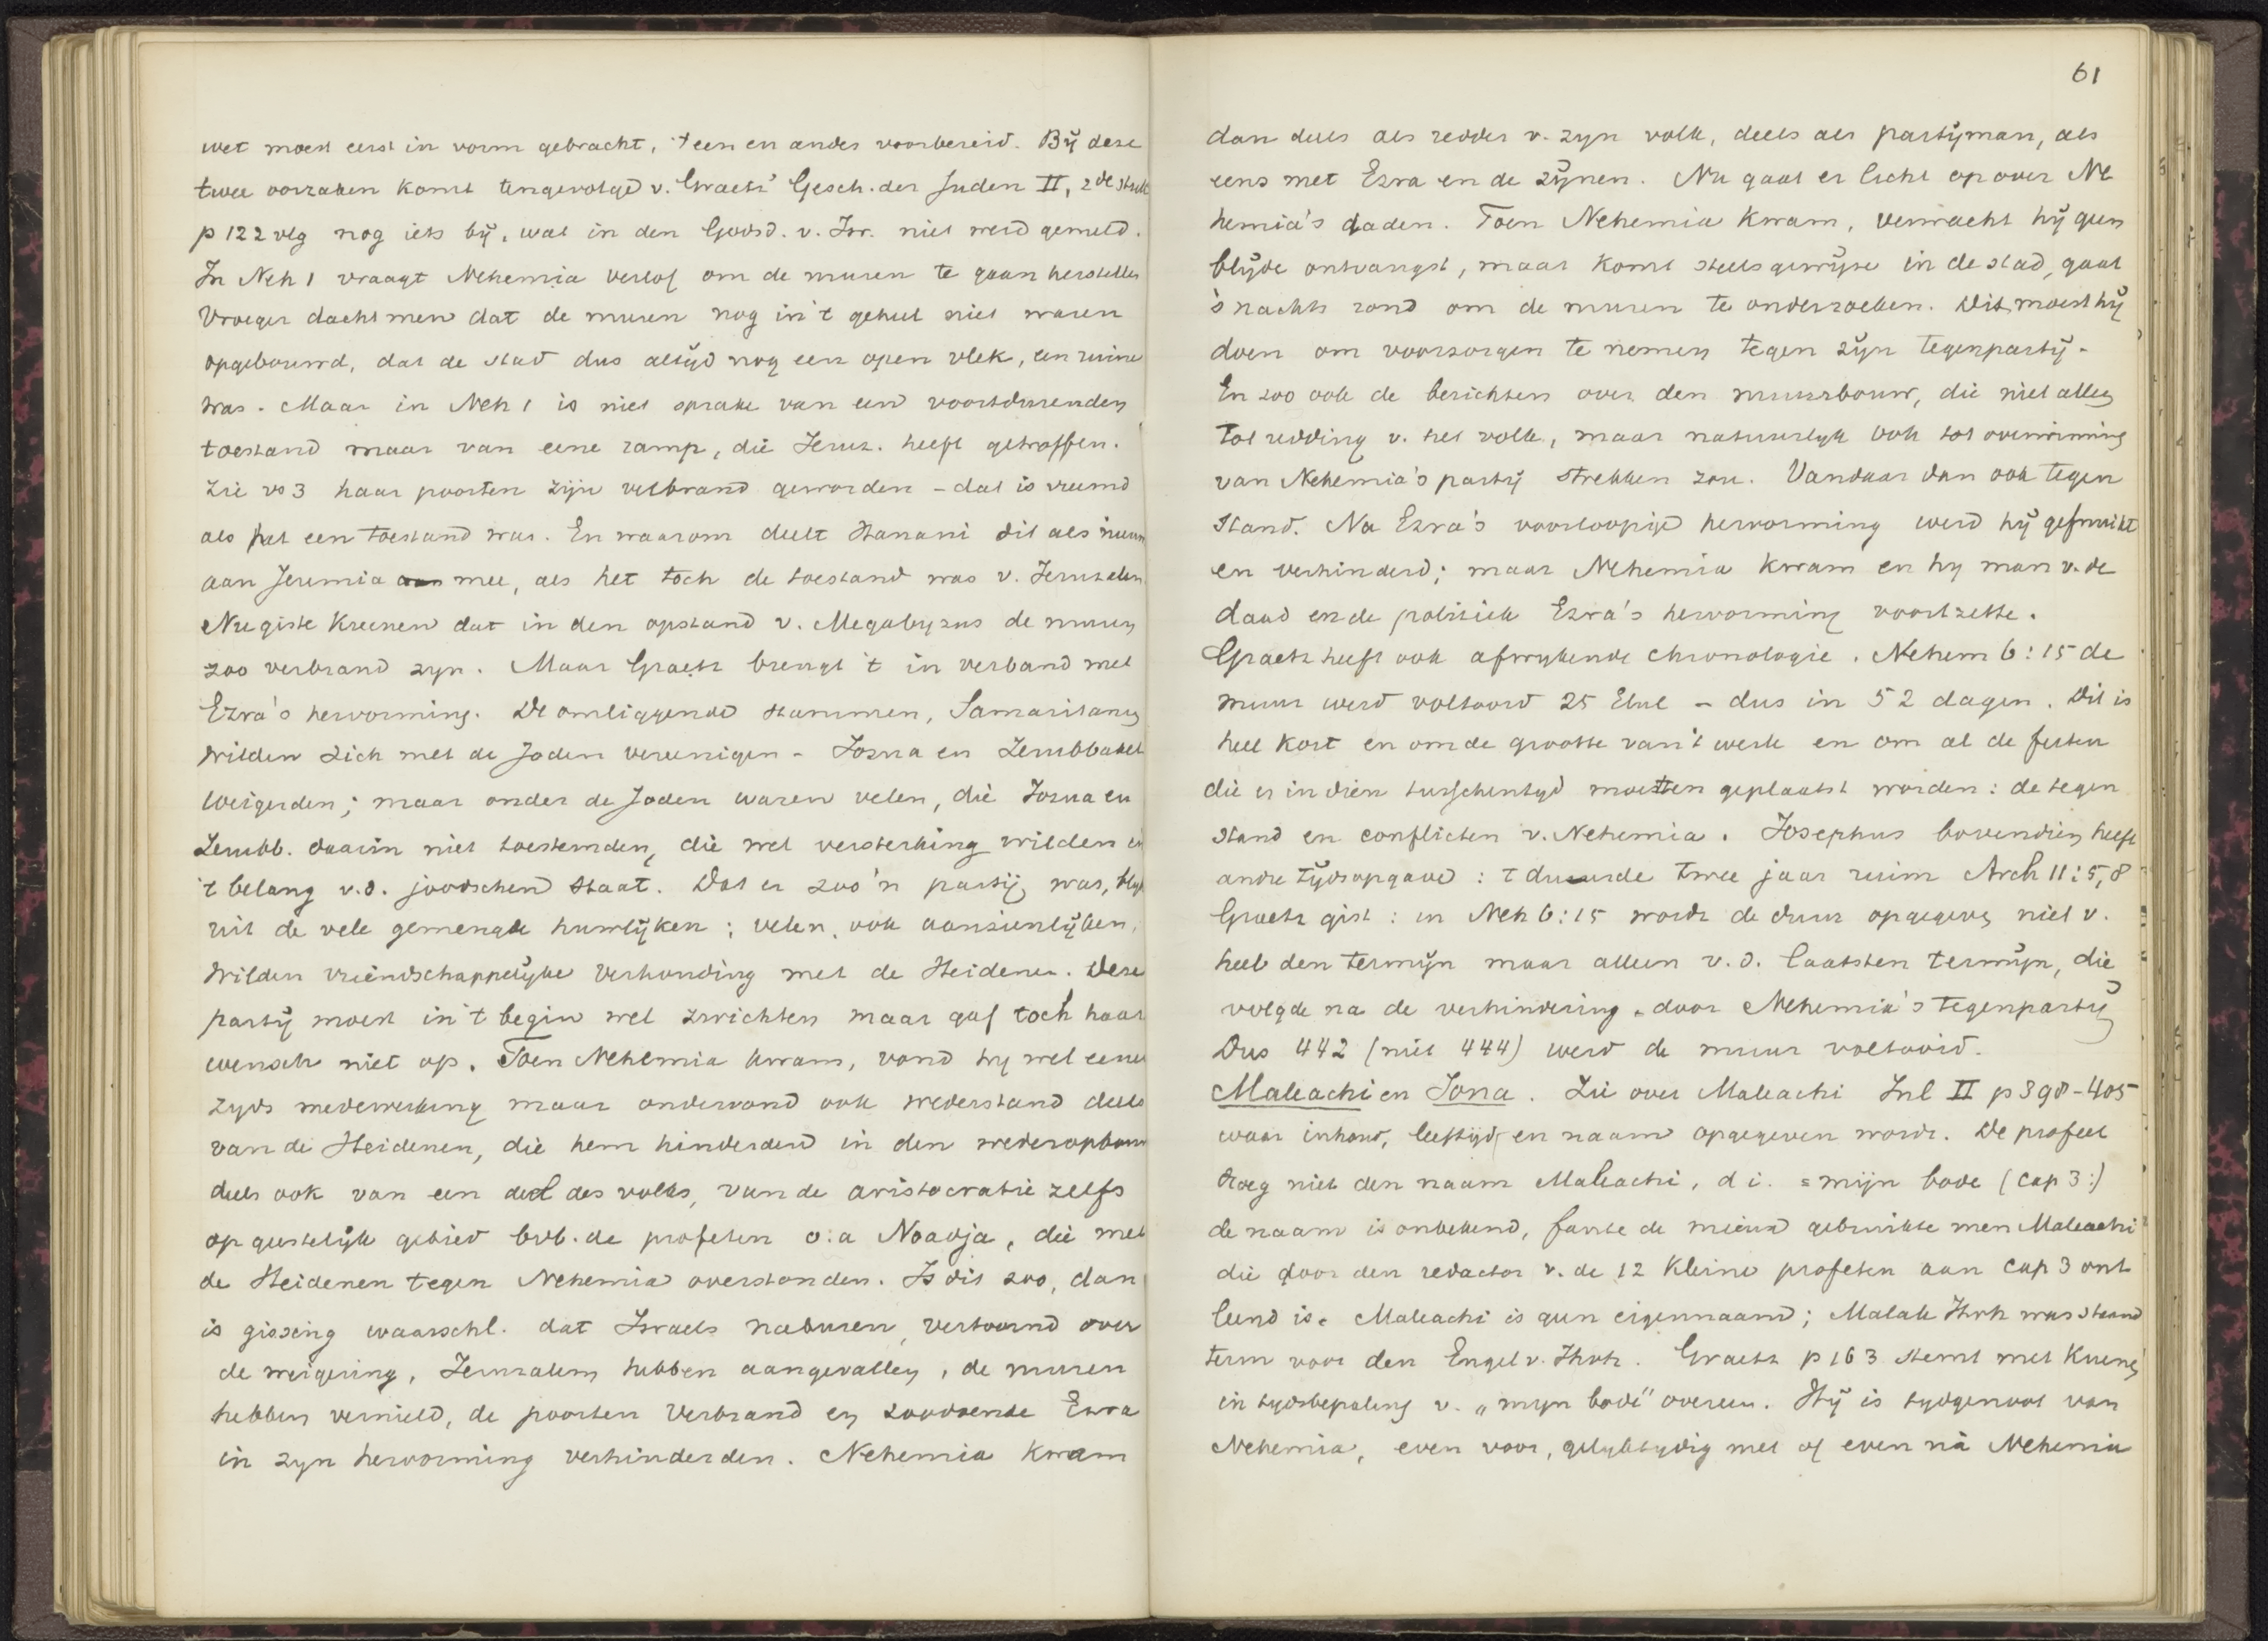 wet moest eerst in vorm gebracht, 't een en ander voorbereid. Bÿ deze
twee oorzaken komt tengevolge v. Graetz' Gesch. der Juden II, 2de stuk
p 122 vlg nog iets bÿ, wat in den Godsd. v. Isr. niet werd gemeld.
In Neh 1 vraagt Nehemia verlof om de muren te gaan herstellen
Vroeger dacht men dat de muren nog in 't geheel niet waren
opgebouwd, dat de stad dus altÿd nog een open vlek, een ruine
was. Maar in Neh 1 is niet sprake van een voortdurenden
toestand maar van eene ramp, die Jeruz. heeft getroffen.
Zie vs 3 haar poorten zijn verbrand geworden – dat is vreemd
als het een toestand was. En waarom deelt Hanani dit als nieuws
aan Jeremia mee, als het toch de toestand was v. Jeruzalem
Nu giste Kuenen dat in den opstand v. Megabyzus de muren
zoo verbrand zyn. Maar Graetz brengt 't in verband met
Ezra's hervorming. De omliggende stammen, Samaritanen
wilden zich met de Joden vereenigen – Jozua en Zerubbabel
weigerden; maar onder de Joden waren velen, die Jozua en
Zerubb. daarin niet toestemden, die wel versterking wilden in
't belang v.d. joodschen staat. Dat er zoo'n partij was, blyk
uit de vele gemengde huwlÿken; velen, ook aanzienlÿken,
wilden vriendschappelÿke verhouding met de Heidenen. Deze
partÿ moest in 't begin wel zwichten maar gaf toch haar
wensch niet op. Toen Nehemia kwam, vond hy wel eener
zyds medewerking maar ondervond ook wederstand deels
van de Heidenen, die hem hinderden in den wederopbouw
deels ook van een deel des volks, van de aristocratie zelfs
op geestelÿk gebied bvb. de profeten o.a Noadja, die met
de Heidenen tegen Nehemia overstonden. Is dit zoo, dan
is gissing waarschl. dat Israels naburen, vertoornd over
de weigering, Jeruzalem hebben aangevallen, de muren
hebben vernield, de poorten verbrand en zoodoende Ezra
in zyn hervorming verhinderden. Nehemia kwam
61
dan deels als redder v. zyn volk, deels als partÿman, als
eens met Ezra en de zÿnen. Nu gaat er licht op over Ne
hemia's daden. Toen Nehemia kwam, verwacht hÿ geen
blÿde ontvangst, maar komt steelsgewÿze in de stad, gaat
's nachts rond om de muren te onderzoeken. Dit moest hÿ
doen om voorzorgen te nemen tegen zÿn tegenpartÿ.
En zoo ook de berichten over den muurbouw, die niet alleen
tot redding v. het volk, maar natuurlyk ook tot overwinning
van Nehemia's partÿ strekken zou. Vandaar dan ook tegen
stand. Na Ezra's voorloopige hervorming werd hÿ gefnuikt
en verhinderd; maar Nehemia kwam en hy man v. de
daad en de politiek Ezra's hervorming voortzette.
Graetz heeft ook afwykende chronologie. Nehem 6:15 de
muur werd voltooid 25 Elul – dus in 52 dagen. Dit is
heel kort en om de grootte van 't werk en om al de feiten
die er in dien tusschentyd moesten geplaatst worden: de tegen
stand en conflicten v. Nehemia. Josephus bovendien heeft
andre tÿdsopgave: t duurde twee jaar ruim Arch 11:5,8
Graetz gist: in Neh 6:15 wordt de duur opgegeven niet v.
heel den termÿn maar alleen v.d. laatsten termÿn, die
volgde na de verhindering door Nehemia's tegenpartÿ
Dus 442 (niet 444) werd de muur voltooid.
Maleachi en Jona. Zie over Maleachi Inl II p 398–405
waar inhoud, leeftÿd en naam opgegeven wordt. De profeet
droeg niet den naam Maleachi, d i. = mijn bode (cap 3:)
de naam is onbekend, faute de mieux gebruikte men Maleachi
die door den redactor v. de 12 kleine profeten aan cap 3 ont
leend is. Maleachi is geen eigennaam; Malak Jhvh was staand
term voor den Engel v. Jhvh. Graetz p 163 stemt met Kuenen
in tydsbepaling v. „myn bode" overeen. Hÿ is tydgenoot van
Nehemia, even voor, gelyktydig met of even nà Nehemia